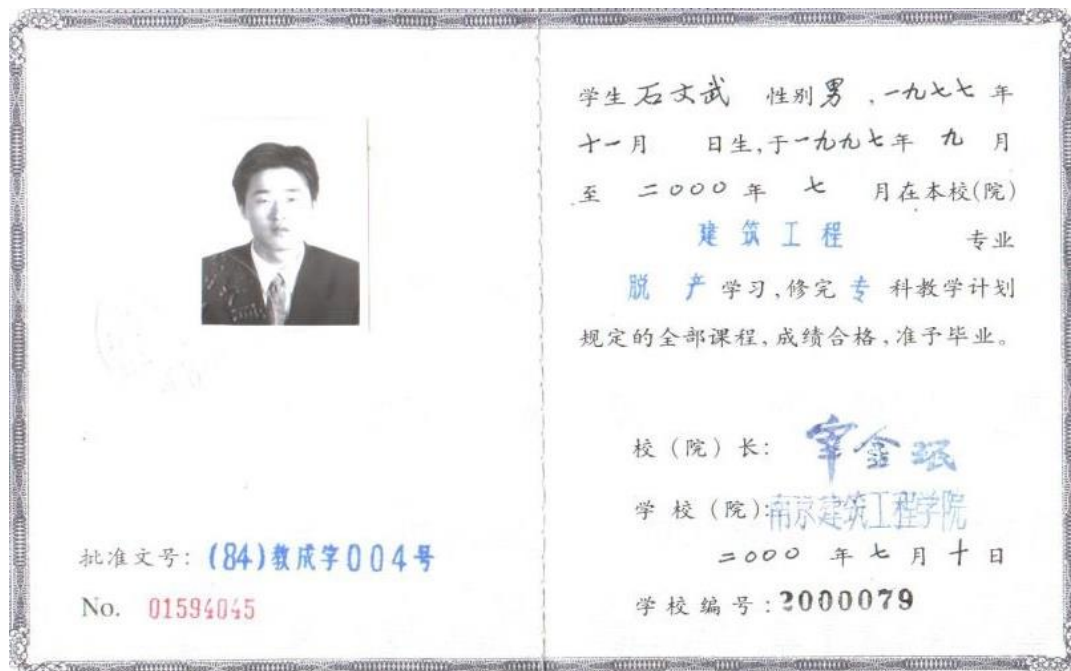 批准文号：(84)教成字004号
No. 01594045
学生石文武 性别男，一九七七年
十一月 日生，于一九九七年 九 月
至 二000年 七 月在本校(院)
建筑工程 专业
脱产学习，修完专科教学计划
规定的全部课程，成绩合格，准予毕业。
校（院）长：宰金珉
学校（院）：南京建筑工程学院
二000年七月十日
学校编号：2000079